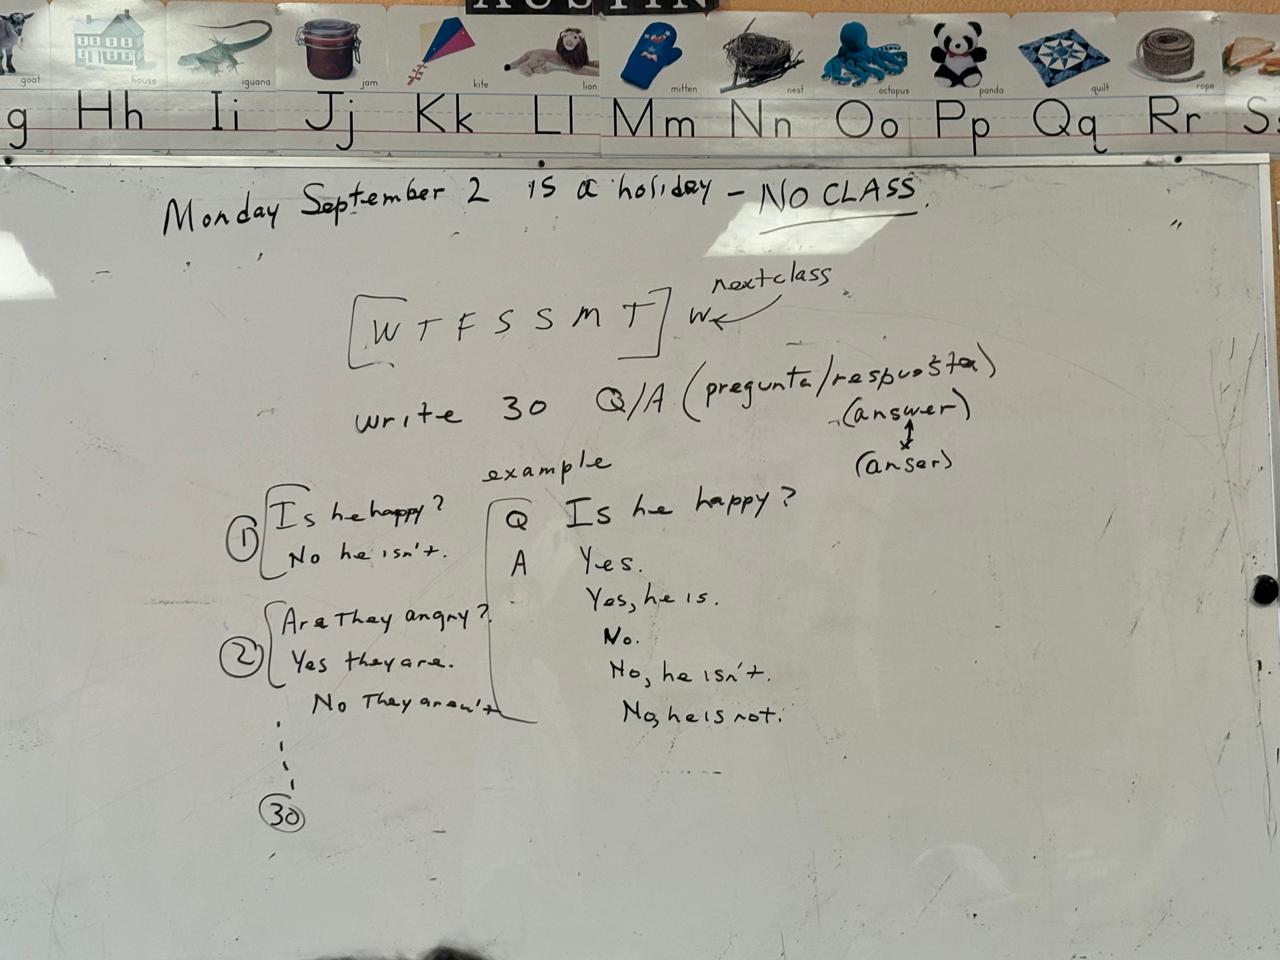 AUSTIN
goat house iguana jam kite lion mitten nest octopus panda quilt rope
g Hh Ii Jj Kk Ll Mm Nn Oo Pp Qq Rr S
Monday September 2 is a holiday - NO CLASS.
next class
[W T F S S M T] W
write 30 Q/A (pregunta/respuesta)
(answer)
(anser)
example
① Is he happy?
No he isn't.
② Are They angry?
Yes they are.
No They aren't
30
Q Is he happy?
A Yes.
Yes, he is.
No.
No, he isn't.
No, he is not.